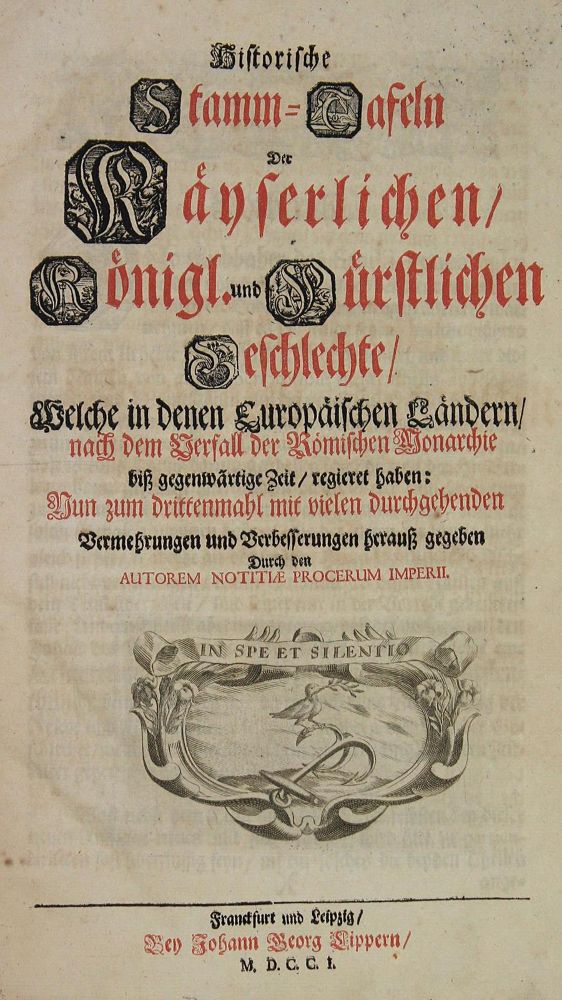 Historische
Stamm-Tafeln
Der
Käyserlichen/
Königl. und Fürstlichen
Geschlechte/
Welche in denen Europäischen Ländern/
nach dem Verfall der Römischen Monarchie
biß gegenwärtige Zeit/ regieret haben:
Nun zum drittenmahl mit vielen durchgehenden
Vermehrungen und Verbesserungen herauß gegeben
Durch den
AUTOREM NOTITIÆ PROCERUM IMPERII.
IN SPE ET SILENTIO
Franckfurt und Leipzig/
Bey Johann Georg Lippern/
M. D. C. C. I.